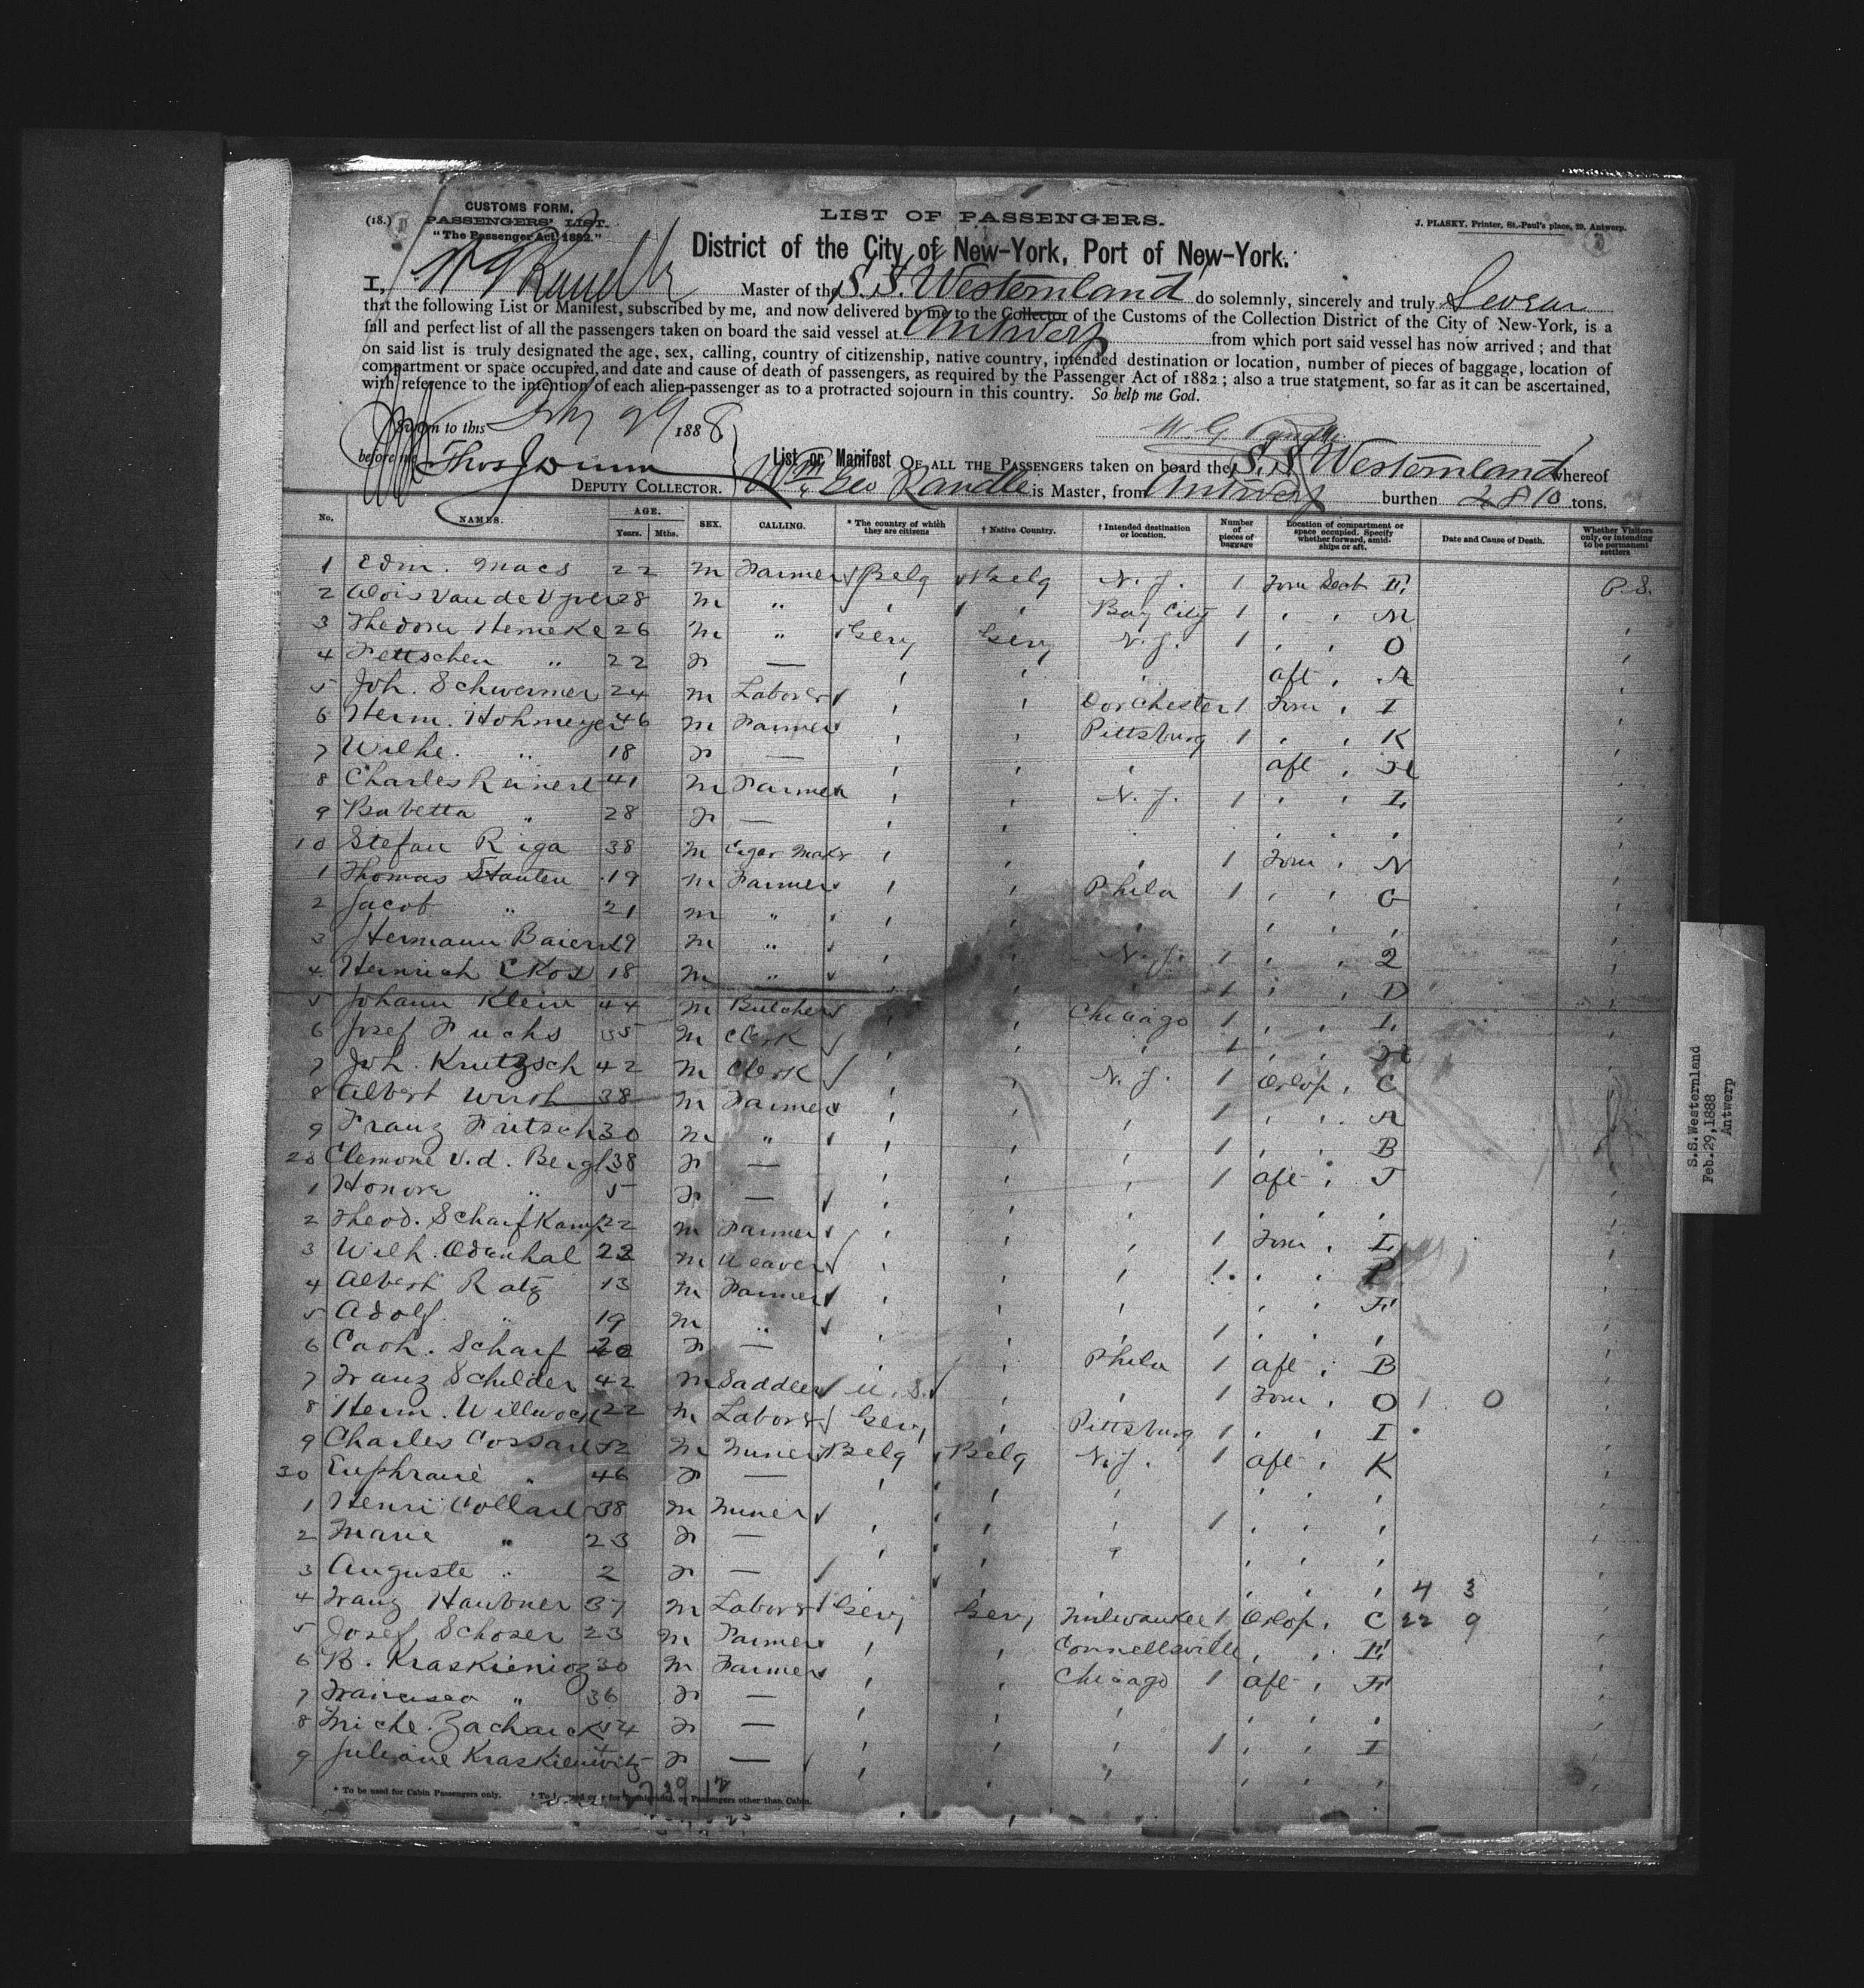 (18.) CUSTOMS FORM.
PASSENGERS' LIST.
"The Passenger Act, 1882."
LIST OF PASSENGERS.
J. PLASKY, Printer, St.-Paul's place, 29, Antwerp.
District of the City of New-York, Port of New-York.
I, W G Randle Master of the S.S. Westernland do solemnly, sincerely and truly Swear
that the following List or Manifest, subscribed by me, and now delivered by me to the Collector of the Customs of the Collection District of the City of New-York, is a
full and perfect list of all the passengers taken on board the said vessel at Antwerp from which port said vessel has now arrived; and that
on said list is truly designated the age, sex, calling, country of citizenship, native country, intended destination or location, number of pieces of baggage, location of
compartment or space occupied, and date and cause of death of passengers, as required by the Passenger Act of 1882; also a true statement, so far as it can be ascertained,
with reference to the intention of each alien passenger as to a protracted sojourn in this country. So help me God.
Sworn to this Feby 29 1888
W. G. Randle
before me Thos J Dunn
DEPUTY COLLECTOR.
List or Manifest OF ALL THE PASSENGERS taken on board the S.S. Westernland whereof
Wm Geo Randle is Master, from Antwerp burthen 2810 tons.
No. NAMES. AGE. Years. Mths. SEX. CALLING. * The country of which they are citizens † Native Country. † Intended destination or location. Number of pieces of baggage Location of compartment or space occupied. Specify whether forward, amidships or aft. Date and Cause of Death. Whether Visitors only, or intending to be permanent settlers
1 Edm. Maes 22 M Farmer Belg Belg N.J. 1 Forw Deck E P.S.
2 Alois Van de Vyver 28 M " ' ' Bay City 1 ' ' M '
3 Theodor Hemeke 26 M " Gery Gery N.J. 1 ' ' O '
4 Fettschen " 22 F — ' ' ' aft ' A '
5 Joh. Schwermer 24 M Laborer ' ' Dorchester 1 Forw ' I '
6 Herm. Hohmeyer 46 M Farmer ' ' Pittsburg 1 ' ' K '
7 Wilhe. " 18 F — ' ' ' aft ' H '
8 Charles Reinert 41 M Farmer ' ' N.J. 1 ' ' L '
9 Babetta " 28 F — ' ' ' ' ' ' '
10 Stefan Riga 38 M Cigar Makr ' ' ' 1 Forw ' N '
1 Thomas Stauten 19 M Farmer ' ' Phila 1 ' ' G '
2 Jacob " 21 M " ' ' ' ' ' ' '
3 Hermann Baiern 19 M " ' ' N.J. 1 ' ' 2 '
4 Heinrich Ekos 18 M " ' ' ' 1 ' ' D '
5 Johann Klein 44 M Butcher ' ' Chicago 1 ' ' L '
6 Josef Fuchs 35 M Clerk ' ' ' 1 ' ' H '
7 Joh. Krutzsch 42 M Clerk ' ' N.J. 1 Orlop ' C '
8 Albert Wirth 38 M Farmer ' ' ' 1 ' ' A '
9 Franz Fritsch 30 M " ' ' ' 1 ' ' B '
20 Clemone v.d. Bergh 38 F — ' ' ' 1 aft ' J '
1 Honore " 5 F — ' ' ' ' ' ' '
2 Theod. Scharfkamp 22 M Farmer ' ' ' 1 Forw ' L '
3 Wilh. Odenhal 22 M Weaver ' ' ' 1 ' ' P '
4 Albert Ratz 13 M Farmer ' ' ' ' ' F '
5 Adolf " 19 M " ' ' ' 1 ' ' ' '
6 Cath. Scharf 20 F — ' ' Phila 1 aft ' B '
7 Franz Schilder 42 M Saddler U.S. ' ' 1 Forw ' O 1 0 '
8 Herm. Willwock 22 M Laborer Gery ' Pittsburg 1 ' ' I '
9 Charles Cossart 52 M Miner Belg Belg N.J. 1 aft ' K '
30 Euphrasie " 46 F — ' ' ' ' ' ' '
1 Henri Collard 38 M Miner ' ' ' 1 ' ' ' '
2 Marie " 23 F — ' ' ' ' ' ' '
3 Auguste " 2 F — ' ' ' ' ' ' 4 3 '
4 Franz Haubner 37 M Laborer Gery Gery Milwaukee 1 Orlop ' C 22 9 '
5 Josef Schoser 23 M Farmer ' ' Connellsville ' ' E '
6 B. Kraskieniog 30 M Farmer ' ' Chicago 1 aft ' F '
7 Francisca " 36 F — ' ' ' ' ' ' '
8 Miche. Zacharck 54 F — ' ' ' 1 ' ' I '
9 Juliane Kraskienwitz F — ' ' ' ' ' ' '
* To be used for Cabin Passengers only.
Passengers other than Cabin.
S.S.Westernland
Feb.29,1888
Antwerp